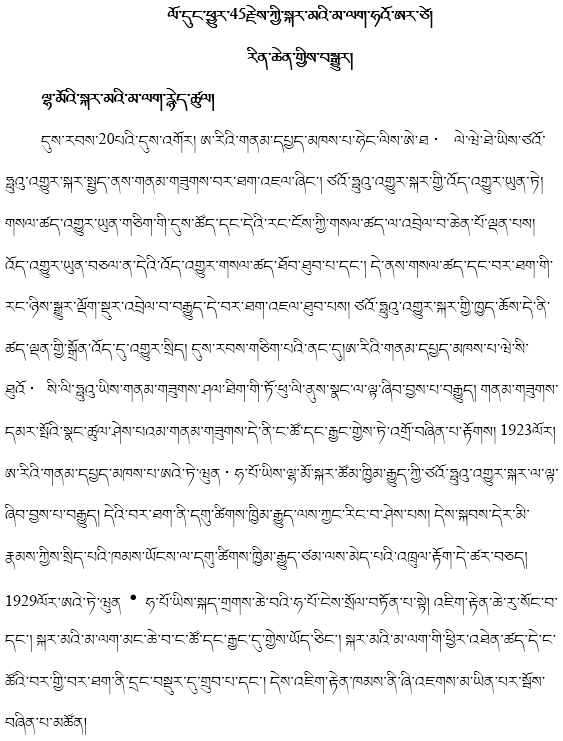 ལོ་དུང་ཕྱུར་45རྗེས་ཀྱི་སྐར་མའི་མ་ལག་ཧའོ་ཨར་ཙེ།
རིན་ཆེན་གྱིས་བསྒྱུར།
ལྷ་མོའི་སྐར་མའི་མ་ལག་རྙེད་ཚུལ།
དུས་རབས་20པའི་དུས་འགོར། ཨ་རིའི་གནམ་དཔྱད་མཁས་པ་ཧེང་ལིས་ཨེ་ཐ · ལེ་ཝེ་ཐེ་ཡིས་ཙའོ་
ཧྥུའུ་འགྱུར་སྐར་སྤྱད་ནས་གནམ་གཟུགས་བར་ཐག་འཇལ་ཞིང་། ཙའོ་ཧྥུའུ་འགྱུར་སྐར་གྱི་འོད་འགྱུར་ཡུན་ཏེ།
གསལ་ཚད་འགྱུར་ཡུན་གཅིག་གི་དུས་ཚོད་དང་དེའི་རང་ངོས་ཀྱི་གསལ་ཚད་ལ་འབྲེལ་བ་ཆེན་པོ་ལྡན་པས།
འོད་འགྱུར་ཡུན་བཅལ་ན་དེའི་འོད་འགྱུར་གསལ་ཚད་ཐོབ་ཐུབ་པ་དང་། དེ་ནས་གསལ་ཚད་དང་བར་ཐག་གི་
རང་ཉིས་སྒྱུར་ལྡོག་སྡུར་འབྲེལ་བ་བརྒྱུད་དེ་བར་ཐག་འཇལ་ཐུབ་པས། ཙའོ་ཧྥུའུ་འགྱུར་སྐར་གྱི་ཁྱད་ཆོས་དེ་ནི་
ཚད་ལྡན་གྱི་སྒྲོན་འོད་དུ་འགྱུར་སྲིད། དུས་རབས་གཅིག་པའི་ནང་དུ།ཨ་རིའི་གནམ་དཔྱད་མཁས་པ་ཝེ་སི་
ཐུའོ · སི་ལི་ཧྥུའུ་ཡིས་གནམ་གཟུགས་ཤལ་ཐིག་གི་ཏོ་ཕུ་ལི་ནུས་སྣང་ལ་ལྟ་ཞིབ་བྱས་པ་བརྒྱུད། གནམ་གཟུགས་
དམར་སྤོའི་སྣང་ཚུལ་ཤེས་པའམ་གནམ་གཟུགས་དེ་ནི་ང་ཚོ་དང་རྒྱང་གྱེས་ཏེ་འགྲོ་བཞིན་པ་རྟོགས། 1923ལོར།
ཨ་རིའི་གནམ་དཔྱད་མཁས་པ་ཨའེ་ཏེ་ཝུན · ཧ་པོ་ཡིས་ལྷ་མོ་སྐར་ཚོམ་ཁྱིམ་རྒྱུད་ཀྱི་ཙའོ་ཧྥུའུ་འགྱུར་སྐར་ལ་ལྟ་
ཞིབ་བྱས་པ་བརྒྱུད། དེའི་བར་ཐག་ནི་དགུ་ཚིགས་ཁྱིམ་རྒྱུད་ལས་ཀྱང་རིང་བ་ཤེས་པས། དེས་སྐབས་དེར་མི་
རྣམས་ཀྱིས་སྲིད་པའི་ཁམས་ཡོངས་ལ་དགུ་ཚིགས་ཁྱིམ་རྒྱུད་ཙམ་ལས་མེད་པའི་འཁྲུལ་རྟོག་དེ་ཚར་བཅད།
1929ལོར་ཨའེ་ཏེ་ཝུན • ཧ་པོ་ཡིས་སྐད་གྲགས་ཆེ་བའི་ཧ་པོ་ངེས་སྲོལ་བཏོན་པ་སྟེ། འཇིག་རྟེན་ཆེ་རུ་སོང་བ་
དང་། སྐར་མའི་མ་ལག་མང་ཆེ་བ་ང་ཚོ་དང་རྒྱང་དུ་གྱེས་ཡོད་ཅིང་། སྐར་མའི་མ་ལག་གི་ཕྱིར་འཐེན་ཚད་དེ་ང་
ཚོའི་བར་གྱི་བར་ཐག་ནི་དྲང་བསྡུར་དུ་གྲུབ་པ་དང་། དེས་འཇིག་རྟེན་ཁམས་ནི་ཞི་འཇགས་མ་ཡིན་པར་སྦོས་
བཞིན་པ་མཚོན།